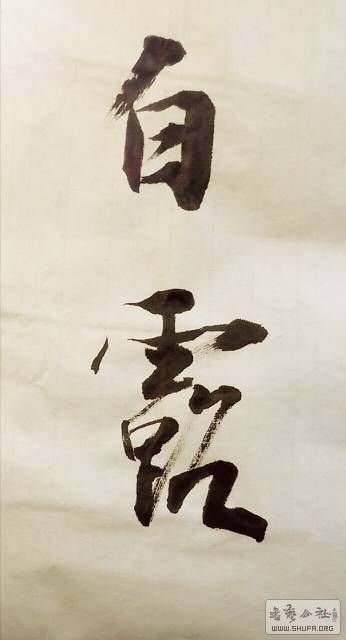 自
露
書藝公社
WWW.SHUFA.ORG